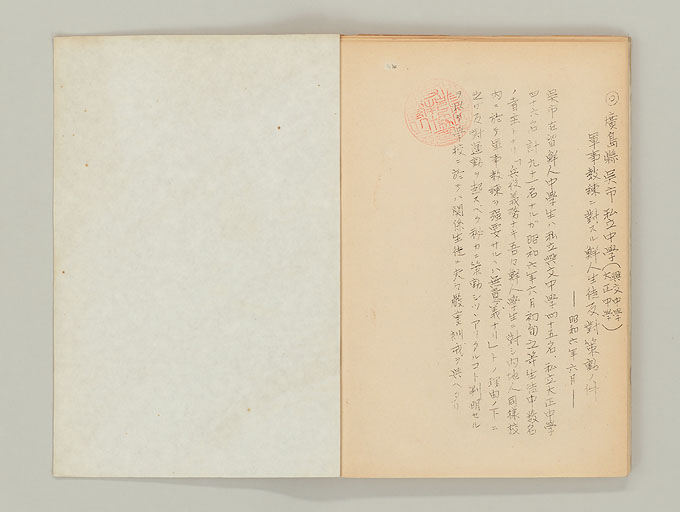 (2) 廣島縣呉市私立中學(興文中學 大正中學)
軍事教練ニ對スル鮮人生徒反對策動ノ件
――昭和六年六月――
呉市在留鮮人中學生ハ私立興文中學四十五名、私立大正中學
四十六名 計九十一名ナルガ昭和六年六月初旬五等生徒中数名
ノ者主トナリ「兵役義務ナキ吾々鮮人學生ニ對シ内地人同様校
内ニ於テ軍事教練ヲ強要サルヽハ無意義ナリ」トノ理由ノ下ニ
之ガ反對運動ヲ起スベク秘カニ策動シツヽアリタルコト判明セル
學校ニ於テハ関係生徒ニ夫々教育訓戒ヲ與ヘ